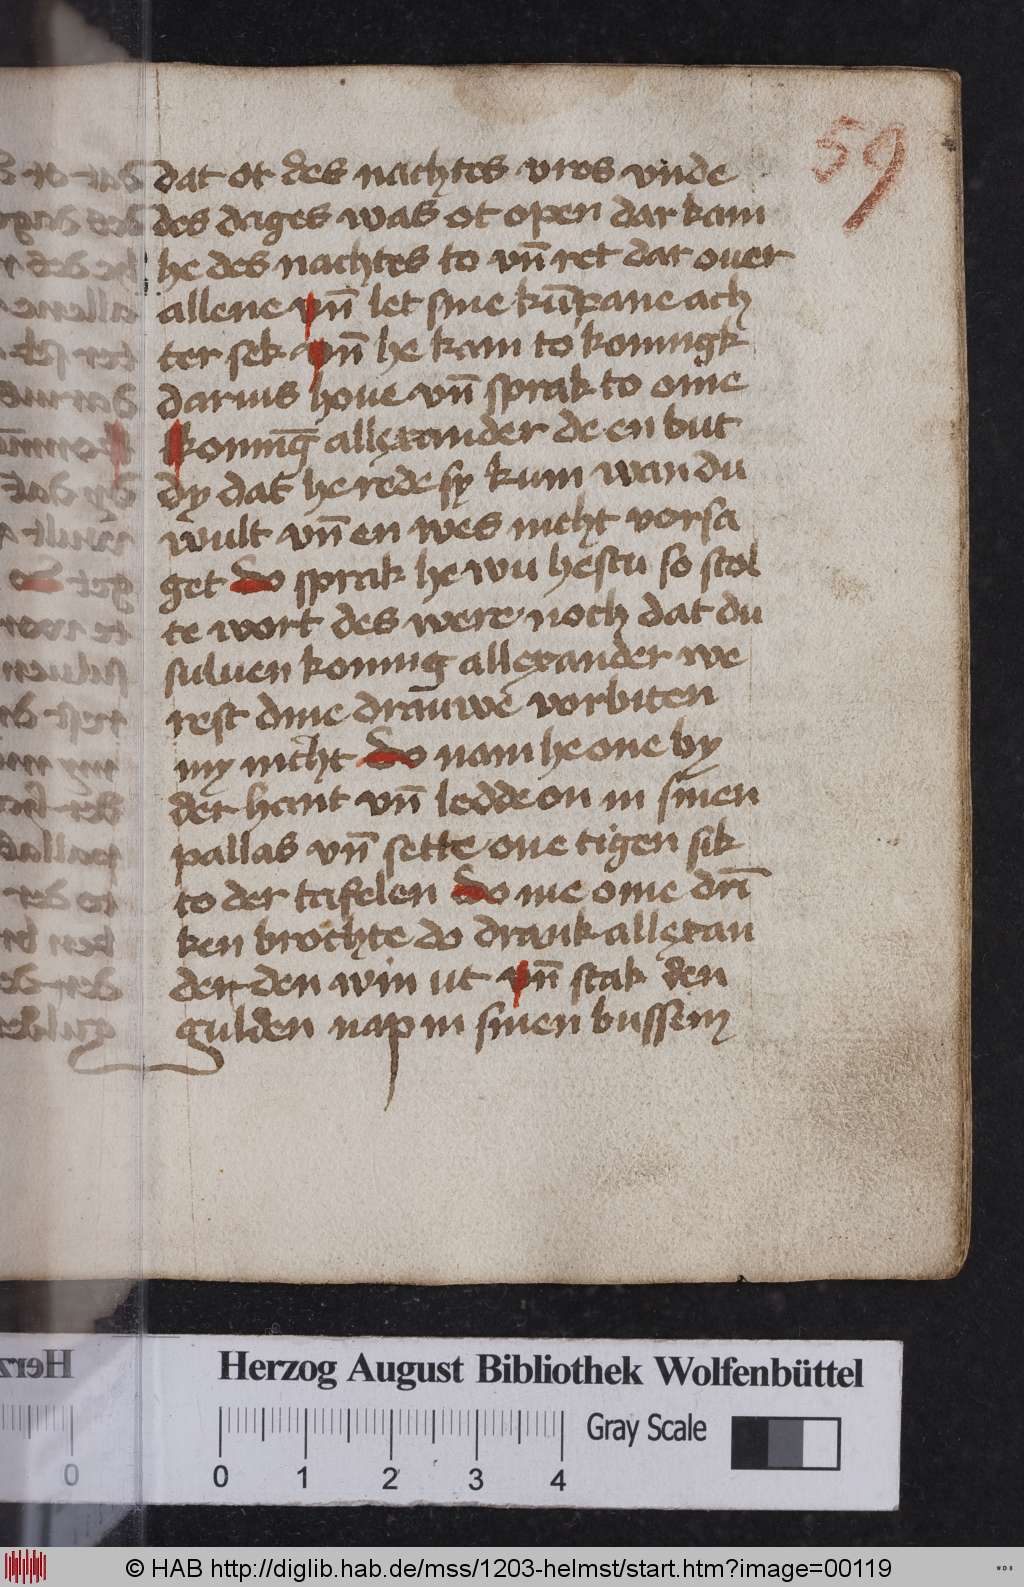 59
dat ot des nachtes vros vnde
des dages was ot open dar kam
he des nachtes to vn̄ ret dar ouer
allene vn̄ let sine kūpane ach
ter sek vn̄ he kam to koningk
darius houe vn̄ sprak to ome
koninḡ allexander de en but
dy dat he rede sy kum wan du
wult vn̄ en wes nicht vorsa
get do sprak he wu hestu so stol
te wort des were noch dat du
suluen koning allexander we
rest dine drāuwe vorbiten
my nicht do nam he one by
der hant vn̄ ledde on in sinen
pallas vn̄ sette one tigen sik
to der tafelen do me ome dri̅
ken brochte do drank allexan
der den win ut vn̄ stak den
gulden nap in sinen bussem
Herzog August Bibliothek Wolfenbüttel
Gray Scale
0 1 2 3 4
© HAB http://diglib.hab.de/mss/1203-helmst/start.htm?image=00119